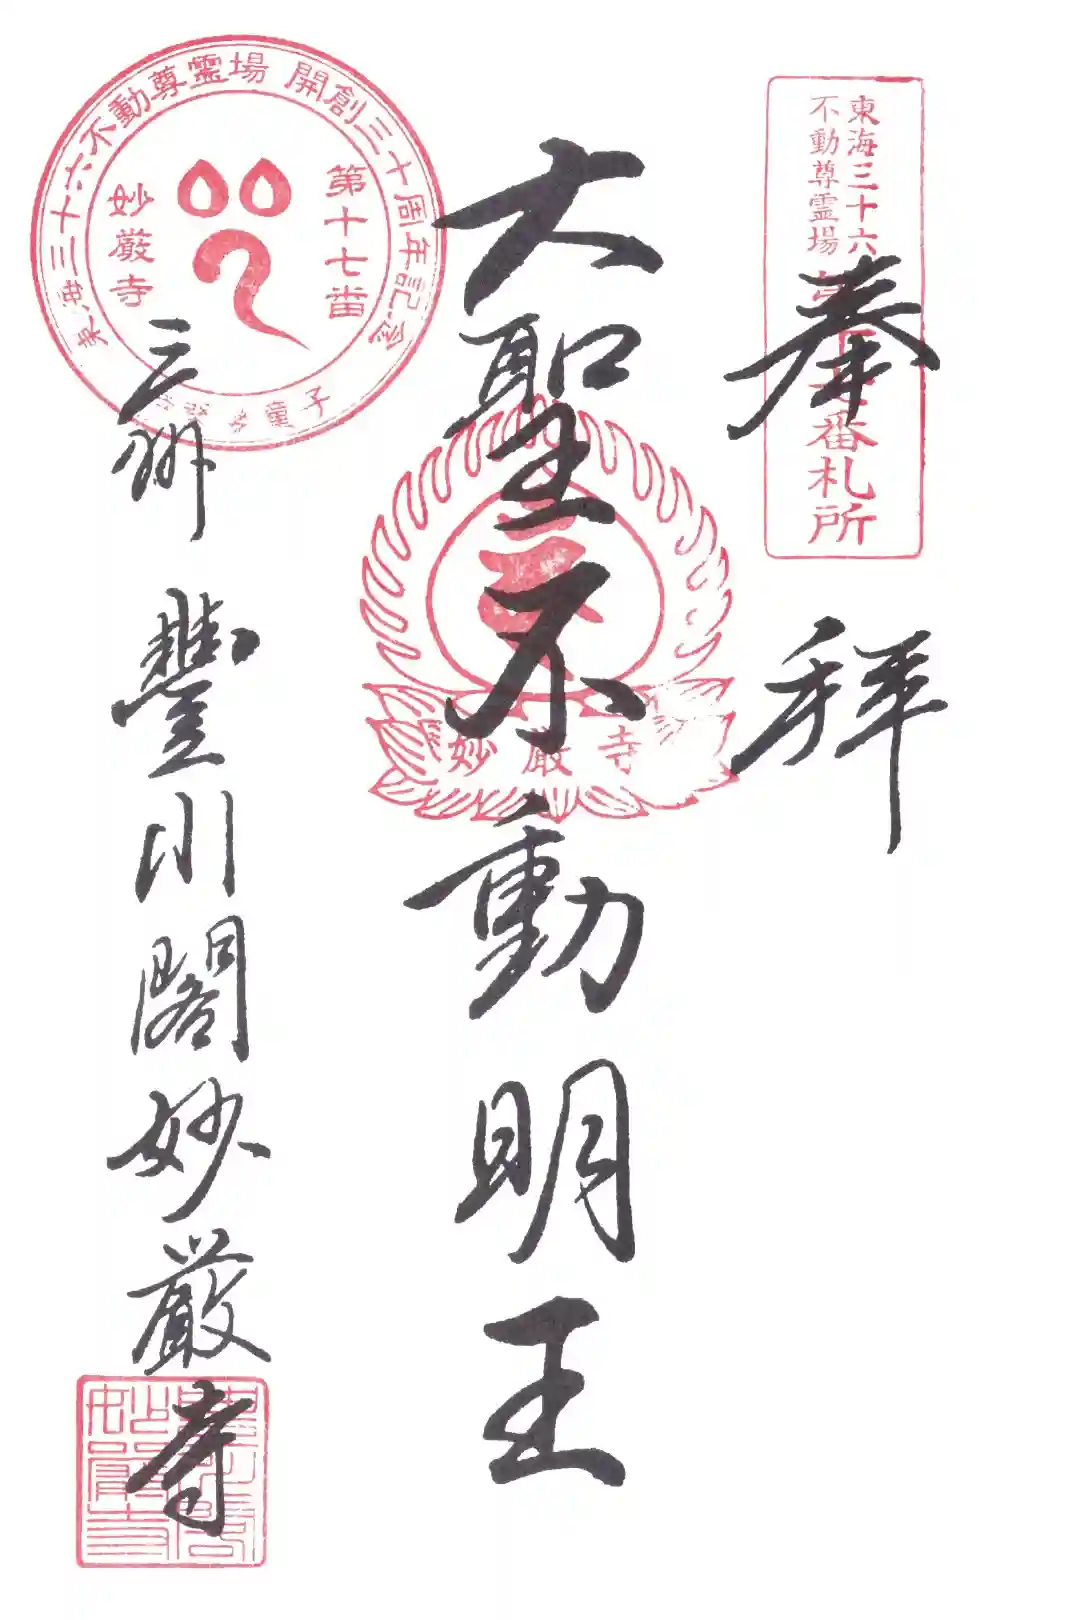 東海三十六
不動尊霊場
番札所
奉拜
大聖不動明王
妙厳寺
東海三十六不動尊霊場 開創三十周年記念
第十七番
妙厳寺
童子
三州 豐川閣妙嚴寺